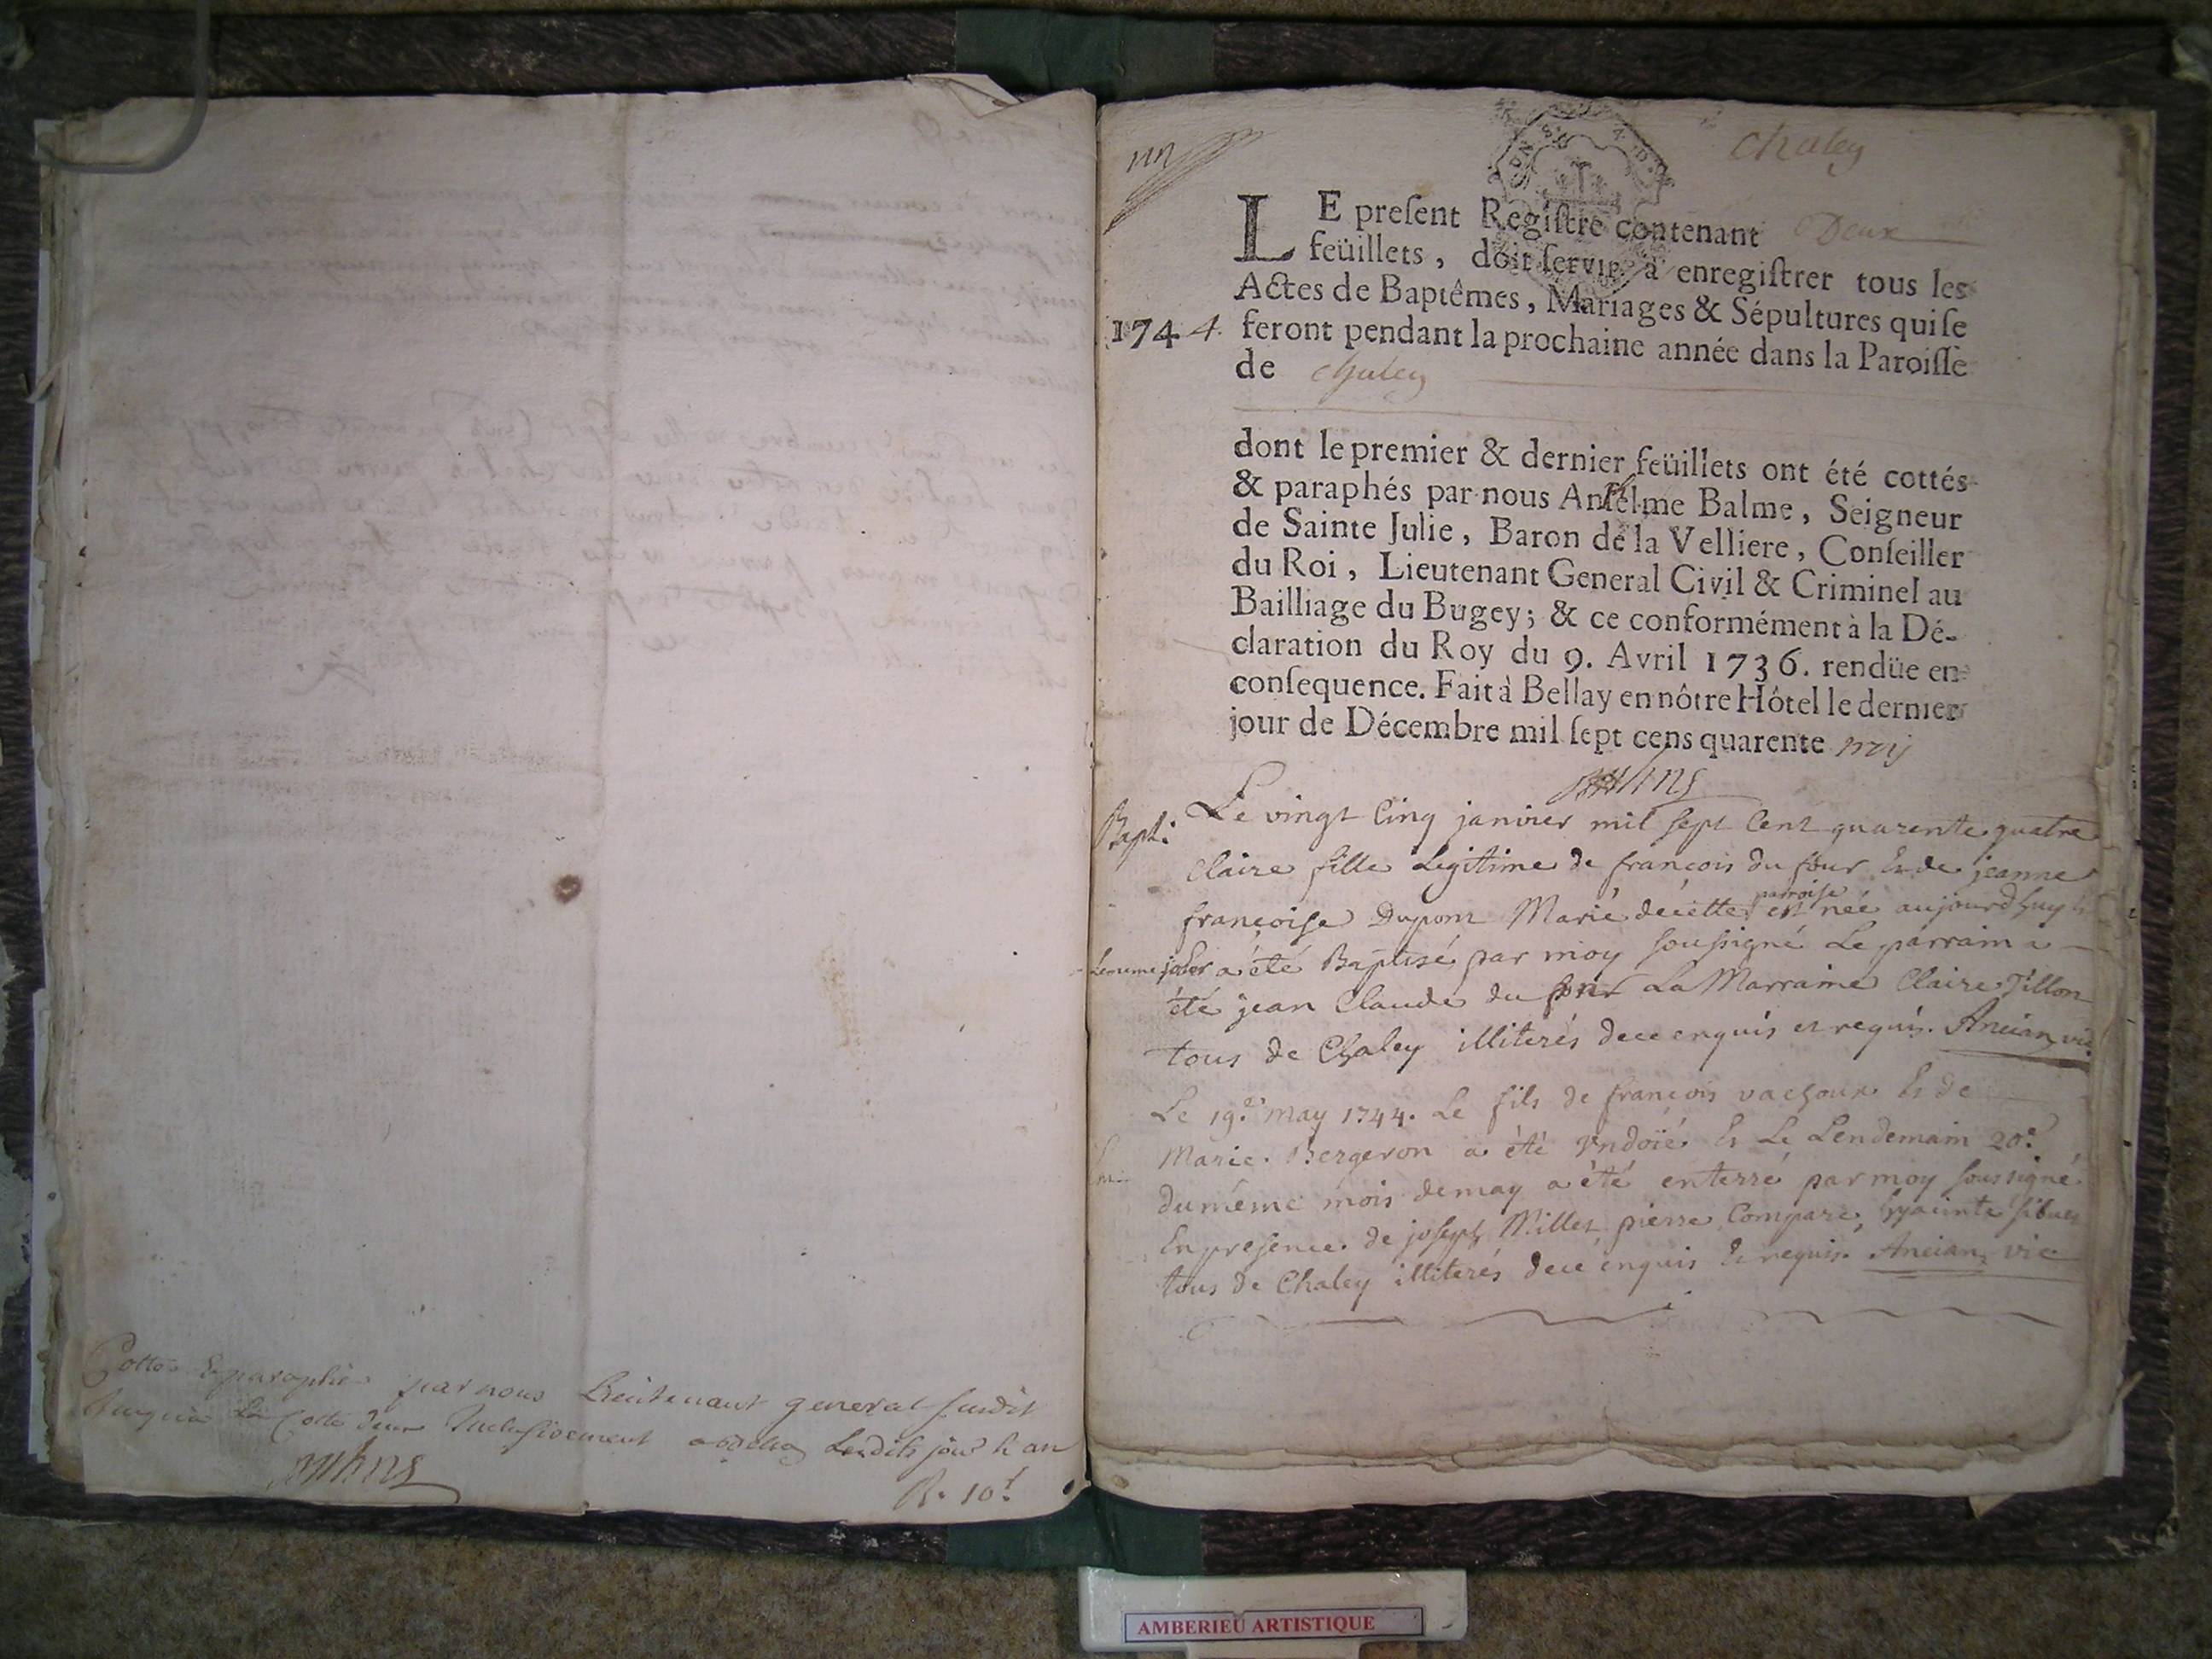 Cottés & paraphés par nous Lieutenant general susdit
Cotte deux Inclusivement lesdits jour & an
R. 10
Chaley
LE preſent Regiſtre contenant Deux
feüillets, doit ſervir à enregiſtrer tous les
Actes de Baptêmes, Mariages & Sépultures qui ſe
1744. feront pendant la prochaine année dans la Paroiſſe
de Chaley
dont le premier & dernier feüillets ont été cottés
& paraphés par nous Anſelme Balme, Seigneur
de Sainte Julie, Baron de la Velliere, Conſeiller
du Roi, Lieutenant General Civil & Criminel au
Bailliage du Bugey; & ce conformément à la Dé-
claration du Roy du 9. Avril 1736. rendüe en
conſequence. Fait à Bellay en nôtre Hôtel le dernier
jour de Décembre mil ſept cens quarente trois
Bapt: Le vingt Cinq janvier mil sept Cent quarente quatre
Claire fille Legitime de francois du four & de jeanne
françoise Dupont Marié de cette parroise est née aujourdhuy &
Le meme jour a été Baptisé par moy soussigné Le parrain a
été jean Claude du four La Marraine Claire Tillon
tous de Chaley illiterés de ce enquis et requis. Ancian vic
Le 19e. may 1744. Le fils de francois vachoux & de
Marie Bergeron a été ondoié & Le Lendemain 20e.
du même mois de may a été enterré par moy soussigné
En presence de joseph Millet, pierre Compare, hyacinte sibuet
tous de Chaley illiterés de ce enquis & requis. Ancian vic
AMBERIEU ARTISTIQUE